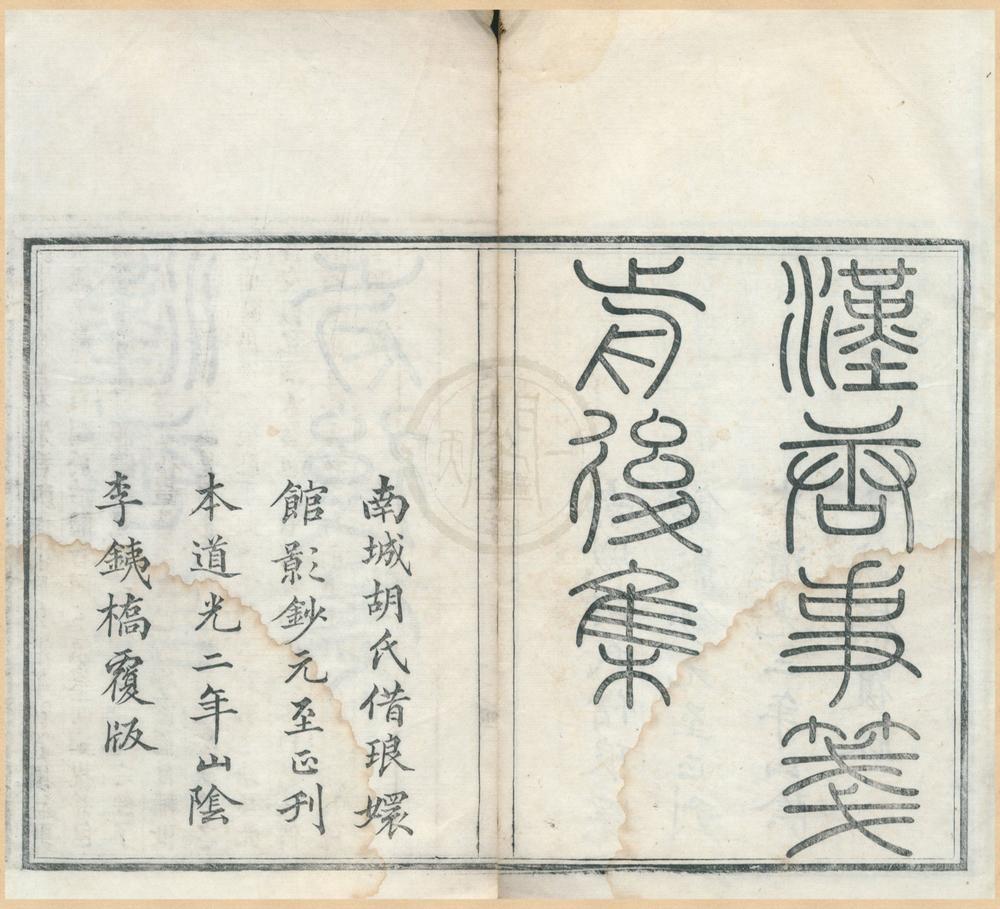 漢唐事箋
歬後集
南城胡氏借琅嬛
館影鈔元至正刊
本道光二年山陰
李銕橋覆版